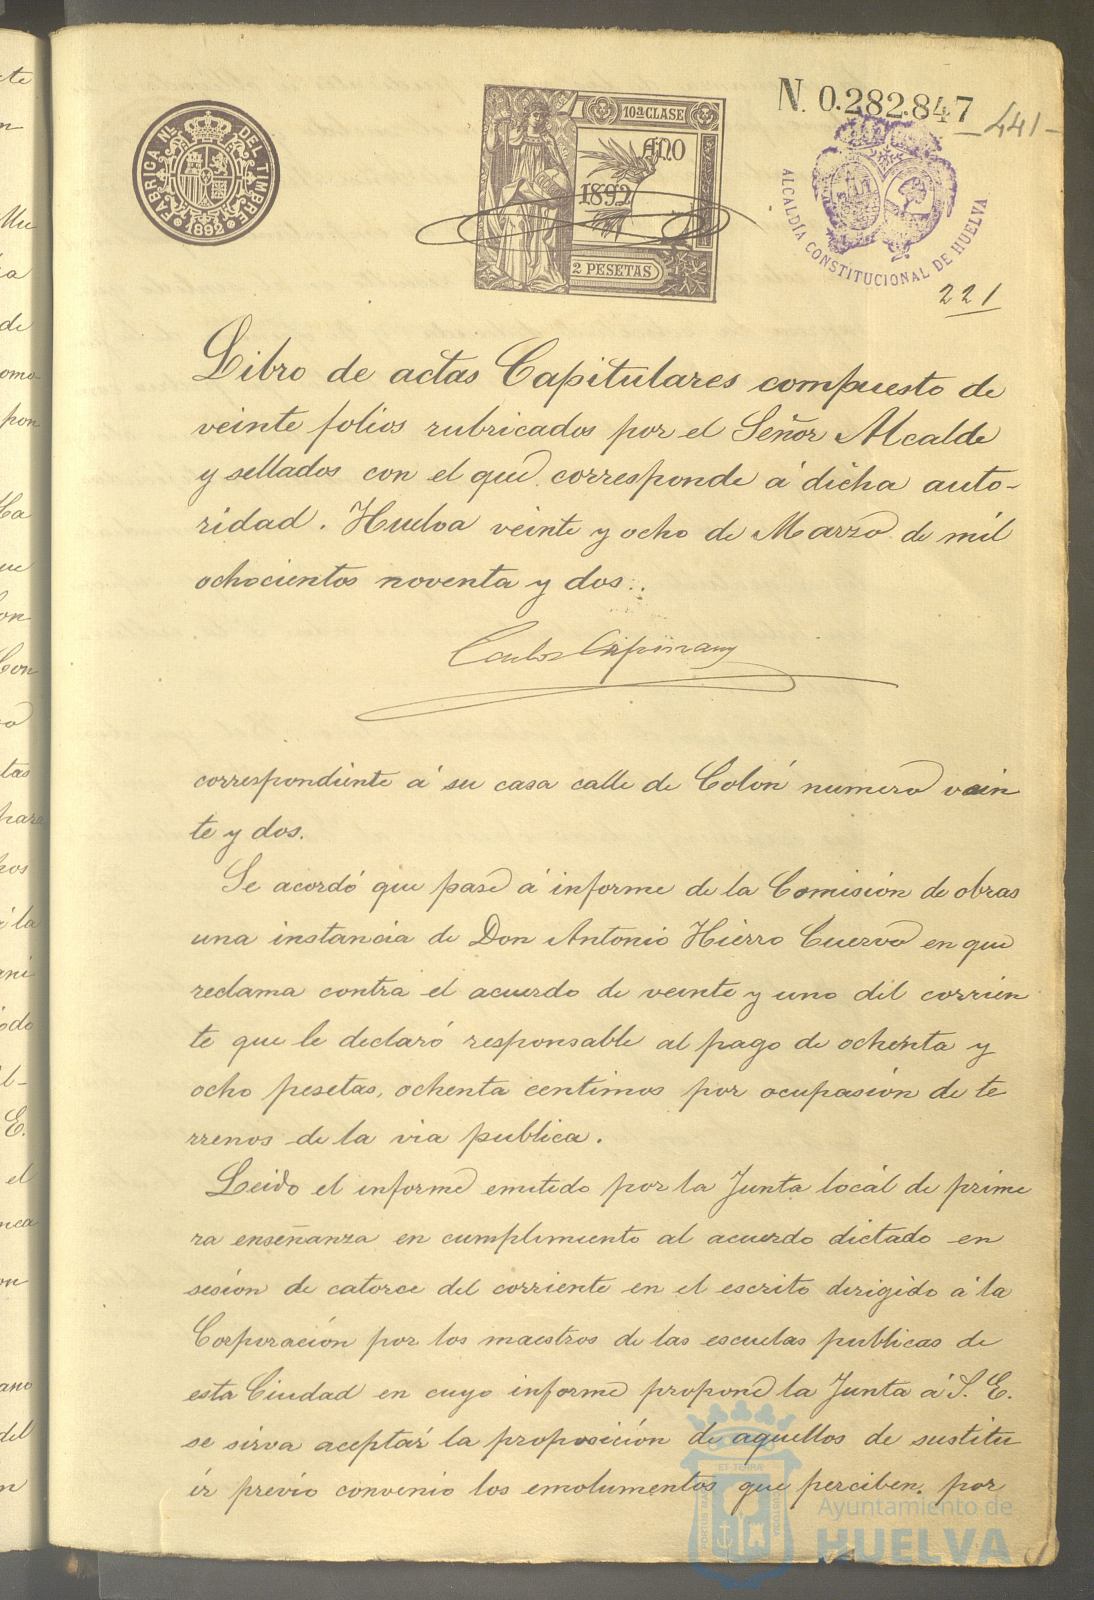 FABRICA NAL DEL TIMBRE
1892
10ª CLASE
AÑO
1892
2 PESETAS
N. 0.282.847
-441-
ALCALDÍA CONSTITUCIONAL DE HUELVA
221
Libro de actas Capitulares compuesto de
veinte folios rubricados por el Señor Alcalde
y sellados con el que corresponde á dicha auto-
ridad. Huelva veinte y ocho de Marzo de mil
ochocientos noventa y dos.
Carlos
correspondiente á su casa calle de Colón numero vein
te y dos.
Se acordó que pase á informe de la Comisión de obras
una instancia de Don Antonio Hierro Cuervo en que
reclama contra el acuerdo de veinte y uno del corrien
te que le declaró responsable al pago de ochenta y
ocho pesetas, ochenta centimos por ocupasión de te
rrenos de la via publica.
Leido el informe emitido por la Junta locál de prime
ra enseñanza en cumplimiento al acuerdo dictado en
sesión de catorce del corriente en el escrito dirigido á la
Corporación por los maestros de las escuelas publicas de
esta Ciudad en cuyo informe propone la Junta á S. E.
se sirva aceptár la proposición de aquellos de sustitu
ir prévio convenio los emolumentos que perciben. por
Ayuntamiento de
HUELVA